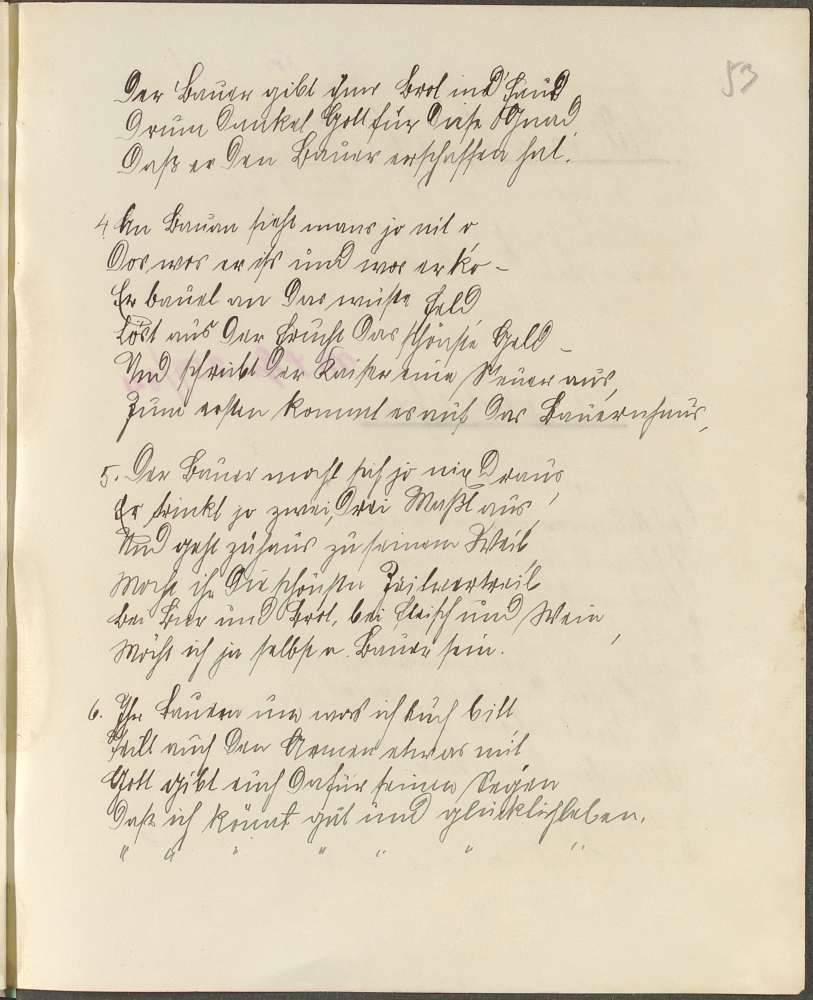 53
Der Bauer gibt ihm Brot ind' Hand
Drum danket Gott für diese Gnad,
Daß er den Bauer erschaffen hat.
4. An Bauan sieht mans jo nit o
Dos wos er ißt und wos er ko –
Er bauet an das wüste Feld
Löst aus der Frucht das schönste Geld –
Und schreibt der Kaiser eine Steuer aus,
Zum ersten kommt es auf das Bauernhaus,
5. Der Bauer macht sich jo nix draus,
Er trinkt jo zwei, drei Maßl aus,
Und geht zuhaus zu seinem Weib,
Macht ihr die schönsten Zeitvertreib
Bei Bier und Brot, bei Fleisch und Wein,
Möcht ich ja selbst a Bauer sein.
6. Ihr Bauern um was ich Euch bitt
Teilt auch den Armen etwas mit
Gott gibt euch dafür seinen Segen
Daß ich könnt gut und glücklich leben.
" " " " " " "